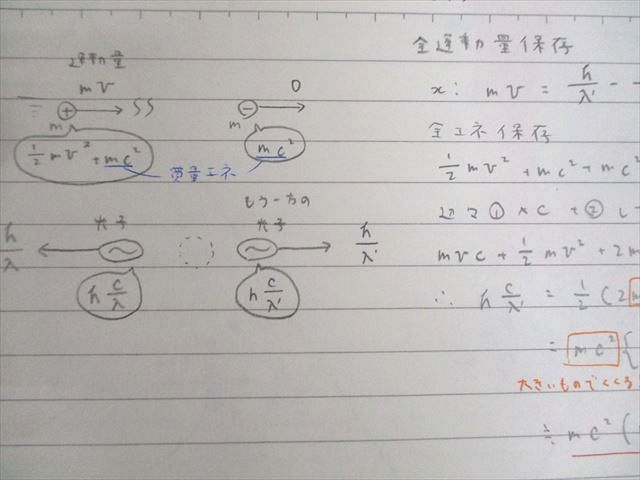 運動量
mv
⊕ → SS
m
1/2 mv² + mc²
0
⊖ →
m
mc²
質量エネ
光子
h/λ
h c/λ
もう一方の
光子
h/λ'
h c/λ'
全運動量保存
x: mv = h/λ' -
全エネ保存
1/2 mv² + mc² + mc²
辺々 ① × c + ②
mvc + 1/2 mv² + 2m
∴ h c/λ' = 1/2 (2m
= mc² {
大きいものでくくる
≒ mc² (